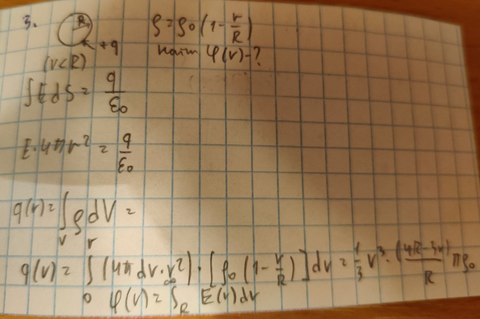 3. R ρ=ρ₀(1-r/R)
(r<R) +q найти φ(r)-?
∫EdS = q/ε₀
E·4πr² = q/ε₀
q(r)=∫_V ρdV=
q(r)=∫₀^r (4π dr·r²)·[ρ₀(1-r/R)]dr = 1/3 r³·(4R-3r)/R πρ₀
φ(r)=∫_R^∞ E(r)dr